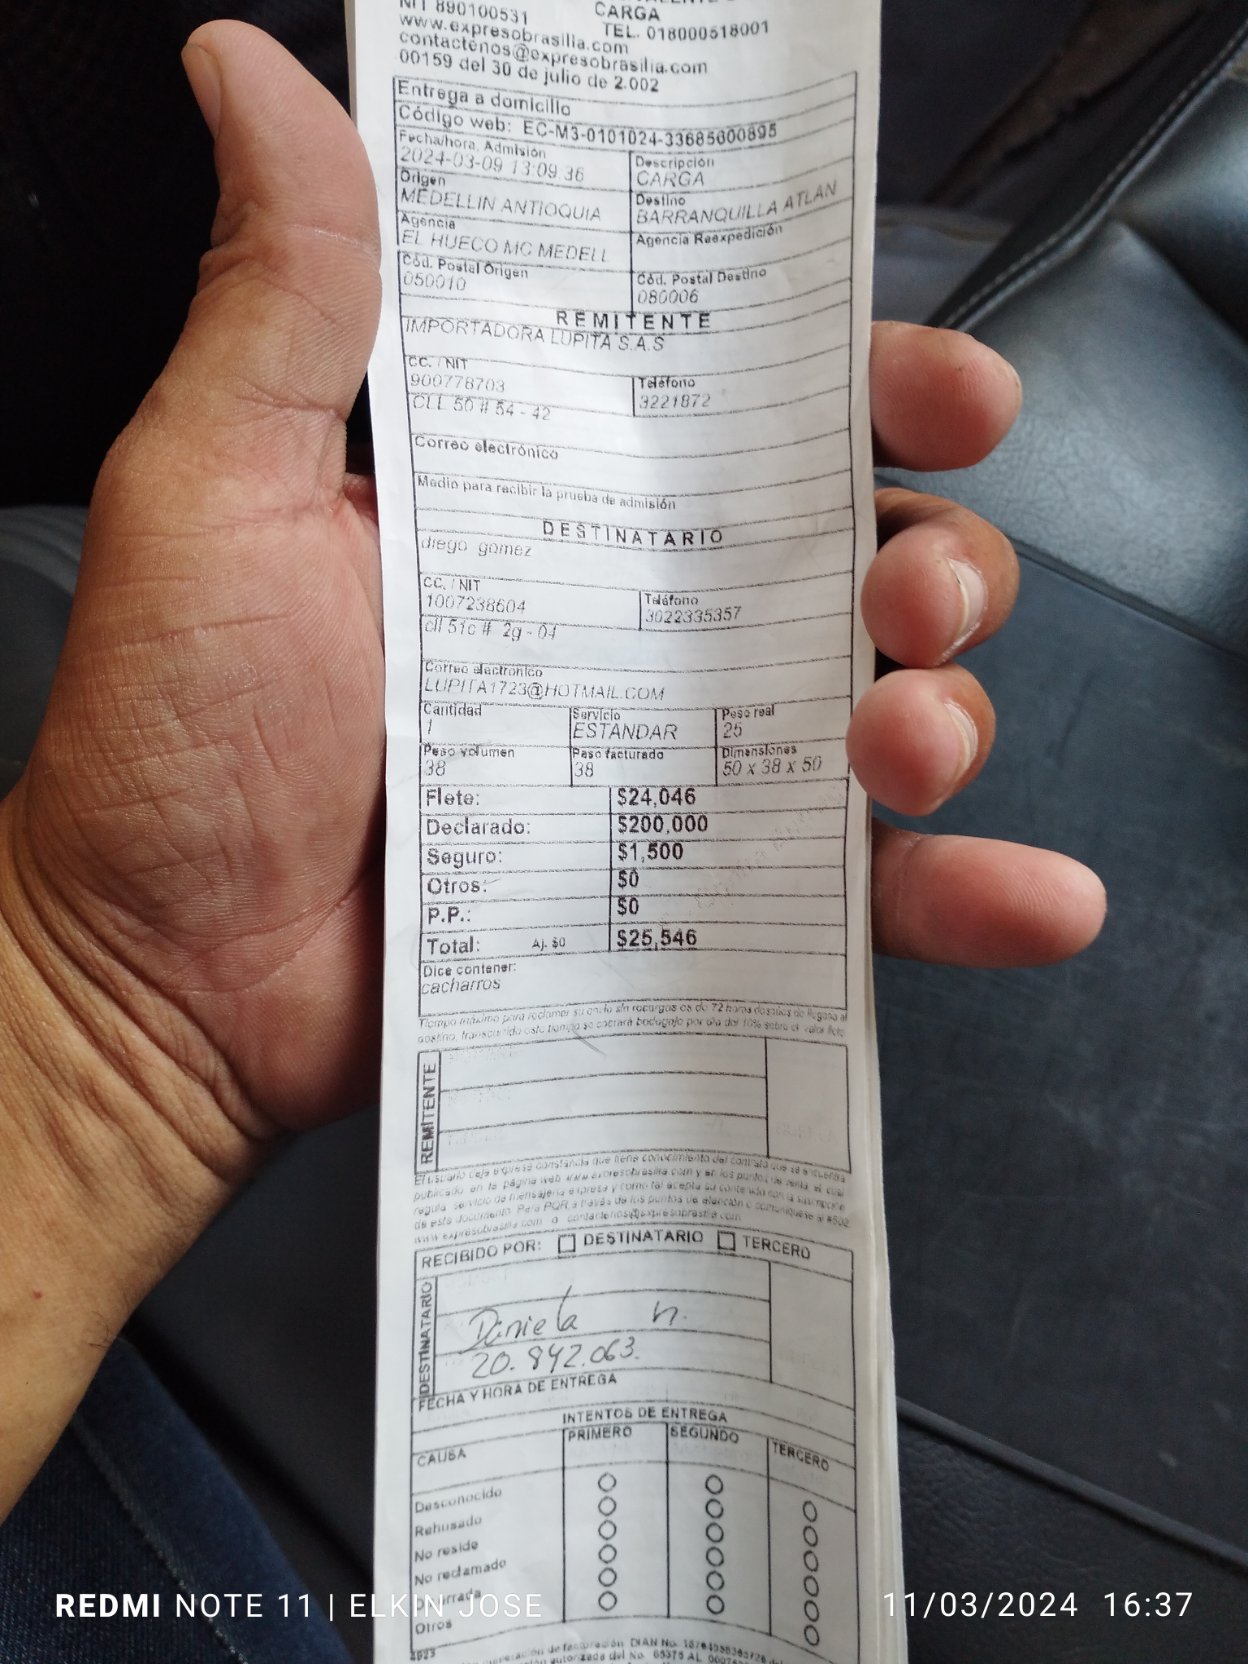 NIT 890100531
CARGA
www.expresobrasilia.com
TEL. 018000518001
contactenos@expresobrasilia.com
00159 del 30 de julio de 2.002
Entrega a domicilio
Código web: EC-M3-0101024-33685600895
Fecha/hora. Admisión
2024-03-09 13:09:36
Descripción
CARGA
Origen
MEDELLIN ANTIOQUIA
Destino
BARRANQUILLA ATLAN
Agencia
EL HUECO MC MEDELL
Agencia Reexpedición
Cód. Postal Origen
050010
Cód. Postal Destino
080006
REMITENTE
IMPORTADORA LUPITA S.A.S
CC. / NIT
900778703
Teléfono
3221872
CLL 50 # 54 - 42
Correo electrónico
Medio para recibir la prueba de admisión
DESTINATARIO
diego gomez
CC. / NIT
1007238604
Teléfono
3022335357
cll 51c # 2g - 04
Correo electrónico
LUPITA1723@HOTMAIL.COM
Cantidad
1
Servicio
ESTANDAR
Peso real
25
Peso volumen
38
Peso facturado
38
Dimensiones
50 x 38 x 50
Flete: $24,046
Declarado: $200,000
Seguro: $1,500
Otros: $0
P.P.: $0
Total: Aj. $0 $25,546
Dice contener:
cacharros
Tiempo máximo para reclamar su envío sin recargos es de 72 horas después de llegada al
destino, transcurrido este tiempo se cobrará bodegaje por día del 10% sobre el valor flete.
REMITENTE
El usuario deja expresa constancia que tiene conocimiento del contrato que se encuentra
publicado en la página web www.expresobrasilia.com y en los puntos de venta, el cual
regula servicio de mensajería expresa y como tal acepta su contenido con la suscripción
de este documento. Para PQR a través de los puntos de atención o comuníquese al #502
www.expresobrasilia.com o contactenos@expresobrasilia.com
RECIBIDO POR: DESTINATARIO TERCERO
DESTINATARIO
Daniela n.
20.842.063.
FECHA Y HORA DE ENTREGA
INTENTOS DE ENTREGA
CAUSA
PRIMERO
SEGUNDO
TERCERO
Desconocido
Rehusado
No reside
No reclamado
Otros
4923
REDMI NOTE 11 | ELKIN JOSE
11/03/2024 16:37